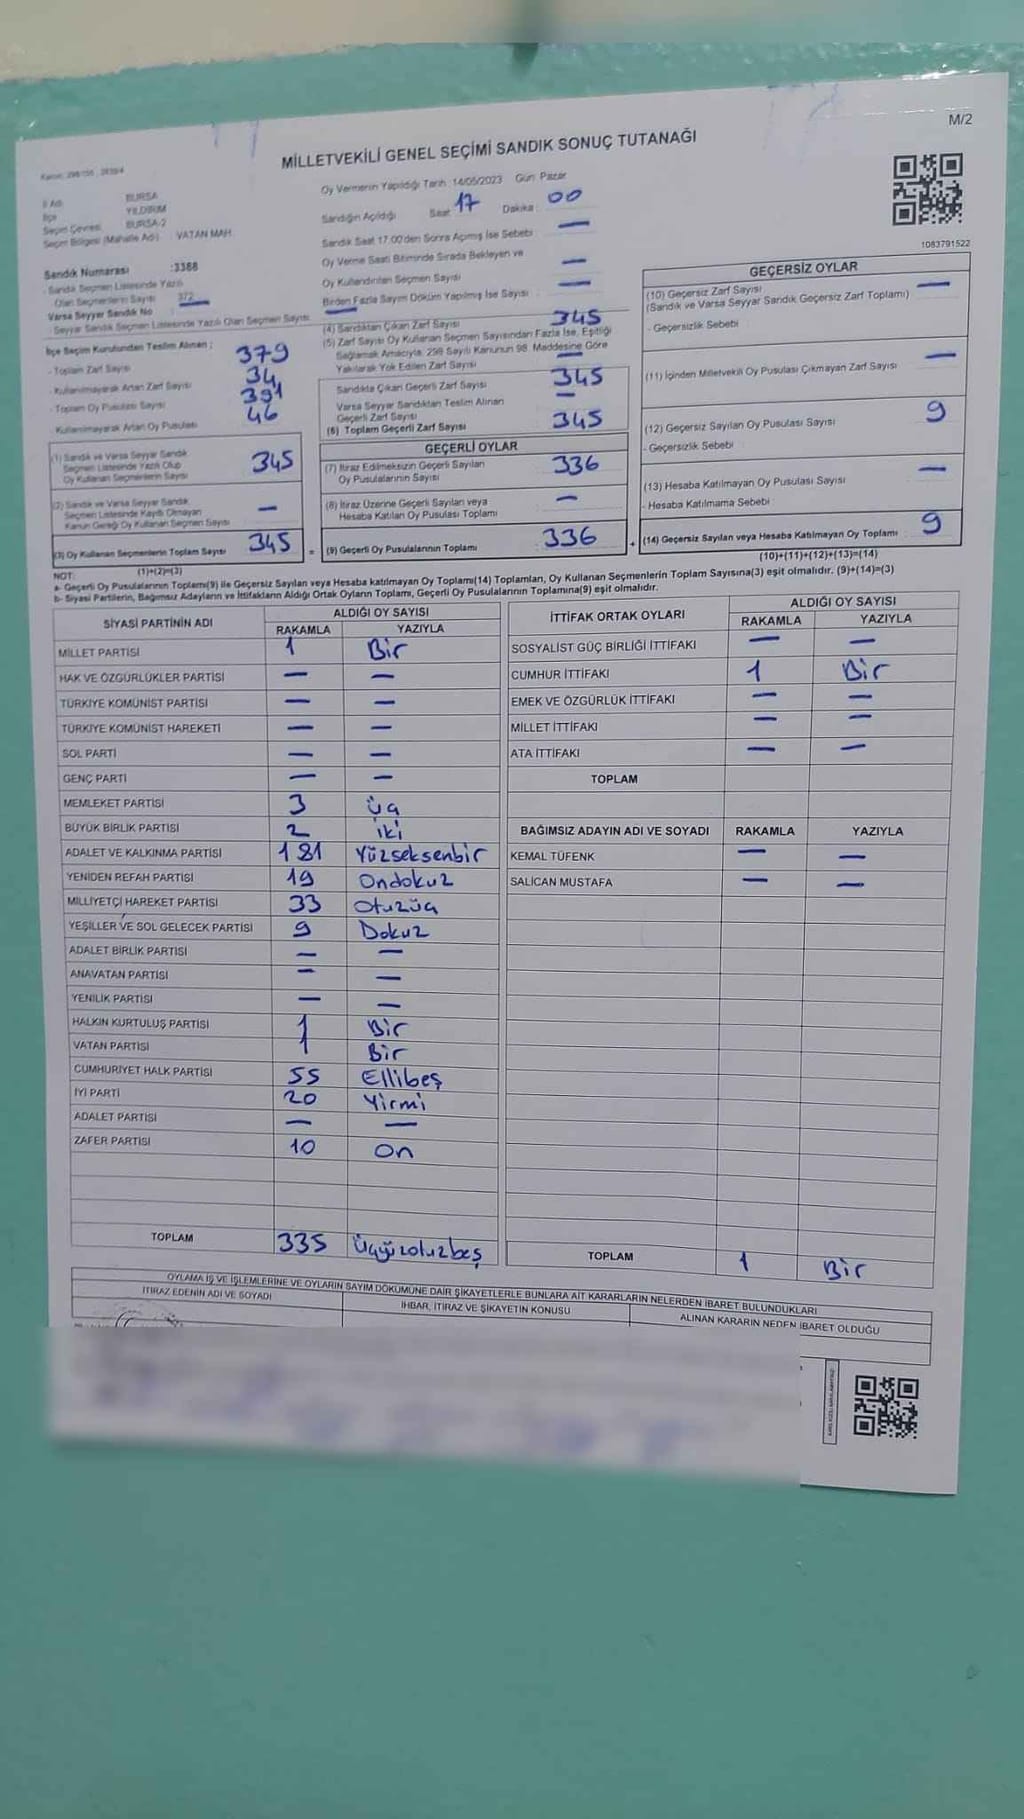 M/2
MİLLETVEKİLİ GENEL SEÇİMİ SANDIK SONUÇ TUTANAĞI
İl Adı BURSA
İlçe YILDIRIM
Seçim Çevresi BURSA-2
Seçim Bölgesi (Mahalle Adı) : VATAN MAH.
Oy Vermenin Yapıldığı Tarih 14/05/2023 Gün: Pazar
Sandığın Açıldığı Saat 17 Dakika : 00
Sandık Saat 17:00'den Sonra Açılmış İse Sebebi —
Oy Verme Saati Bitiminde Sırada Bekleyen ve
Oy Kullandırılan Seçmen Sayısı —
Birden Fazla Sayım Döküm Yapılmış İse Sayısı —
1083791522
Sandık Numarası :3388
- Sandık Seçmen Listesinde Yazılı
Olan Seçmenlerin Sayısı 372
Varsa Seyyar Sandık No —
- Seyyar Sandık Seçmen Listesinde Yazılı Olan Seçmen Sayısı
İlçe Seçim Kurulundan Teslim Alınan ;
- Toplam Zarf Sayısı 379
- Kullanılmayarak Artan Zarf Sayısı 34
- Toplam Oy Pusulası Sayısı 391
- Kullanılmayarak Artan Oy Pusulası 46
(1) Sandık ve Varsa Seyyar Sandık
Seçmen Listesinde Yazılı Olup
Oy Kullanan Seçmenlerin Sayısı 345
(2) Sandık ve Varsa Seyyar Sandık
Seçmen Listesinde Kayıtlı Olmayan
Kanun Gereği Oy Kullanan Seçmen Sayısı —
(3) Oy Kullanan Seçmenlerin Toplam Sayısı 345 =
(1)+(2)=(3)
(4) Sandıktan Çıkan Zarf Sayısı 345
(5) Zarf Sayısı Oy Kullanan Seçmen Sayısından Fazla İse, Eşitliği
Sağlamak Amacıyla, 298 Sayılı Kanunun 98. Maddesine Göre
Yakılarak Yok Edilen Zarf Sayısı —
Sandıkta Çıkan Geçerli Zarf Sayısı 345
Varsa Seyyar Sandıktan Teslim Alınan
Geçerli Zarf Sayısı —
(6) Toplam Geçerli Zarf Sayısı 345
GEÇERLİ OYLAR
(7) İtiraz Edilmeksizin Geçerli Sayılan
Oy Pusulalarının Sayısı 336
(8) İtiraz Üzerine Geçerli Sayılan veya
Hesaba Katılan Oy Pusulası Toplamı —
(9) Geçerli Oy Pusulalarının Toplamı 336 +
GEÇERSİZ OYLAR
(10) Geçersiz Zarf Sayısı —
(Sandık ve Varsa Seyyar Sandık Geçersiz Zarf Toplamı)
- Geçersizlik Sebebi
(11) İçinden Milletvekili Oy Pusulası Çıkmayan Zarf Sayısı —
(12) Geçersiz Sayılan Oy Pusulası Sayısı 9
- Geçersizlik Sebebi
(13) Hesaba Katılmayan Oy Pusulası Sayısı —
- Hesaba Katılmama Sebebi
(14) Geçersiz Sayılan veya Hesaba Katılmayan Oy Toplamı 9
(10)+(11)+(12)+(13)=(14)
NOT:
a- Geçerli Oy Pusulalarının Toplamı(9) ile Geçersiz Sayılan veya Hesaba katılmayan Oy Toplamı(14) Toplamları, Oy Kullanan Seçmenlerin Toplam Sayısına(3) eşit olmalıdır. (9)+(14)=(3)
b- Siyasi Partilerin, Bağımsız Adayların ve İttifakların Aldığı Ortak Oyların Toplamı, Geçerli Oy Pusulalarının Toplamına(9) eşit olmalıdır.
SİYASİ PARTİNİN ADI ALDIĞI OY SAYISI
RAKAMLA YAZIYLA
MİLLET PARTİSİ 1 Bir
HAK VE ÖZGÜRLÜKLER PARTİSİ — —
TÜRKİYE KOMÜNİST PARTİSİ — —
TÜRKİYE KOMÜNİST HAREKETİ — —
SOL PARTİ — —
GENÇ PARTİ — —
MEMLEKET PARTİSİ 3 Üç
BÜYÜK BİRLİK PARTİSİ 2 İki
ADALET VE KALKINMA PARTİSİ 181 Yüzseksenbir
YENİDEN REFAH PARTİSİ 19 Ondokuz
MİLLİYETÇİ HAREKET PARTİSİ 33 Otuzüç
YEŞİLLER VE SOL GELECEK PARTİSİ 9 Dokuz
ADALET BİRLİK PARTİSİ — —
ANAVATAN PARTİSİ — —
YENİLİK PARTİSİ — —
HALKIN KURTULUŞ PARTİSİ 1 Bir
VATAN PARTİSİ 1 Bir
CUMHURİYET HALK PARTİSİ 55 Ellibeş
İYİ PARTİ 20 Yirmi
ADALET PARTİSİ — —
ZAFER PARTİSİ 10 On
TOPLAM 335 Üçyüzotuzbeş
İTTİFAK ORTAK OYLARI ALDIĞI OY SAYISI
RAKAMLA YAZIYLA
SOSYALİST GÜÇ BİRLİĞİ İTTİFAKI — —
CUMHUR İTTİFAKI 1 Bir
EMEK VE ÖZGÜRLÜK İTTİFAKI — —
MİLLET İTTİFAKI — —
ATA İTTİFAKI — —
TOPLAM
BAĞIMSIZ ADAYIN ADI VE SOYADI RAKAMLA YAZIYLA
KEMAL TÜFENK — —
SALİCAN MUSTAFA — —
TOPLAM 1 Bir
OYLAMA İŞ VE İŞLEMLERİNE VE OYLARIN SAYIM DÖKÜMÜNE DAİR ŞİKAYETLERLE BUNLARA AİT KARARLARIN NELERDEN İBARET BULUNDUKLARI
İTİRAZ EDENİN ADI VE SOYADI İHBAR, İTİRAZ VE ŞİKAYETİN KONUSU ALINAN KARARIN NEDEN İBARET OLDUĞU